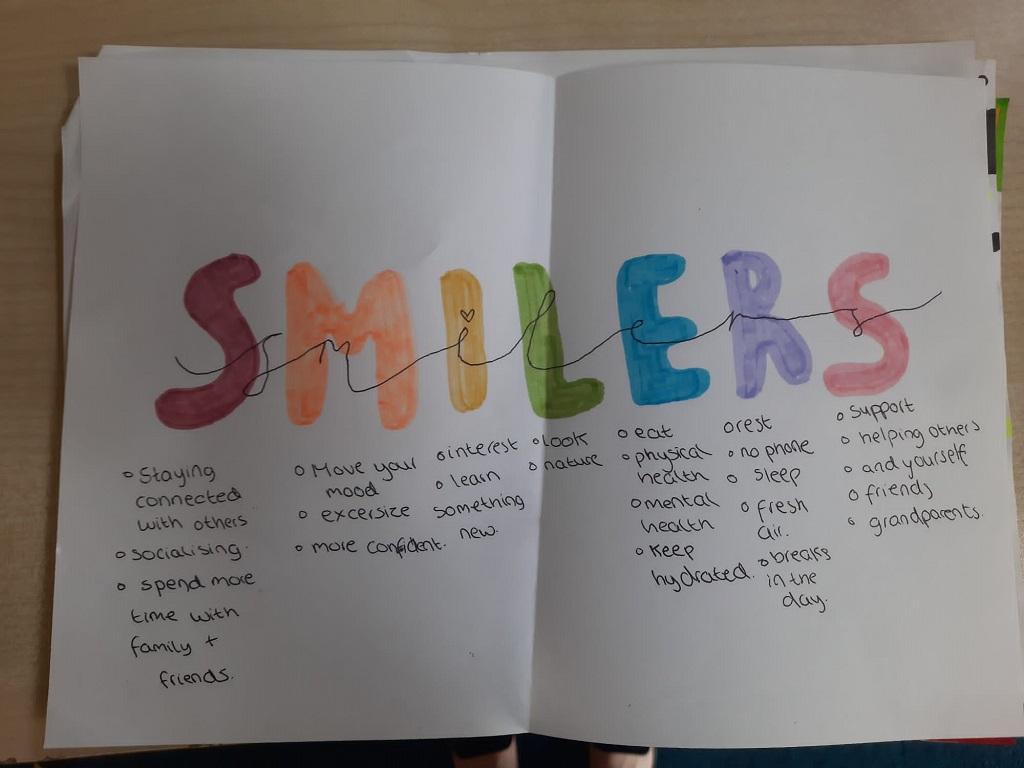 SMILERS
smilers
o Staying
connected
with others
o socialising.
o spend more
time with
family +
friends.
o Move your
mood
o excersize
o more confident.
o interest
o learn
something
new.
o look
o nature
o eat
o physical
health
o mental
health
o keep
hydrated.
o rest
o no phone
o sleep
o fresh
air.
o breaks
in the
day.
o support
o helping others
o and yourself
o friends
o grandparents.